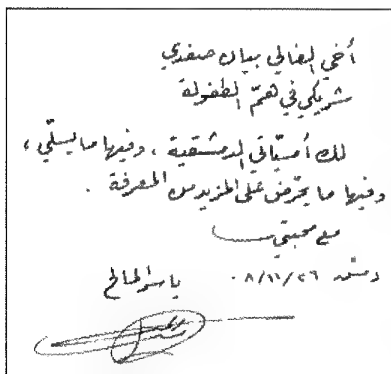 أخي الغالي بيان صفدي
شريكي في همّ الطفولة
لك أمسيّاتي الدمشقية ، وفيها ما يسلّي ،
وفيها ما يحرّض على المزيد من المعرفة .
مع محبتي
دمشق ٢٦/١١/٠٨ ياسر المالح